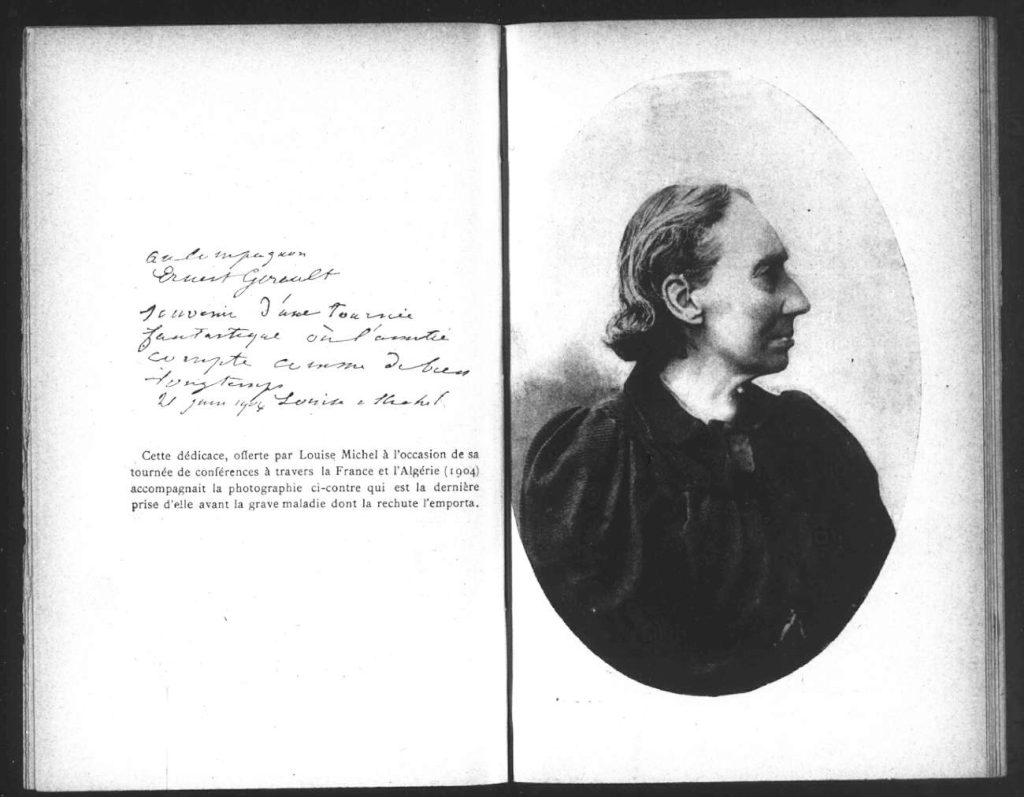 au compagnon
Ernest Girault
souvenir d'une tournée
fantastique où l'amitié
compte comme de bien
longtemps
21 juin 1904 Louise Michel
Cette dédicace, offerte par Louise Michel à l'occasion de sa
tournée de conférences à travers la France et l'Algérie (1904)
accompagnait la photographie ci-contre qui est la dernière
prise d'elle avant la grave maladie dont la rechute l'emporta.